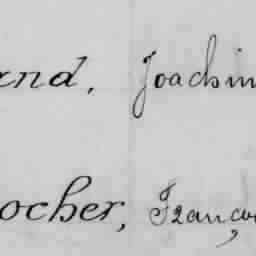 and, Joachim
ocher, Françoi